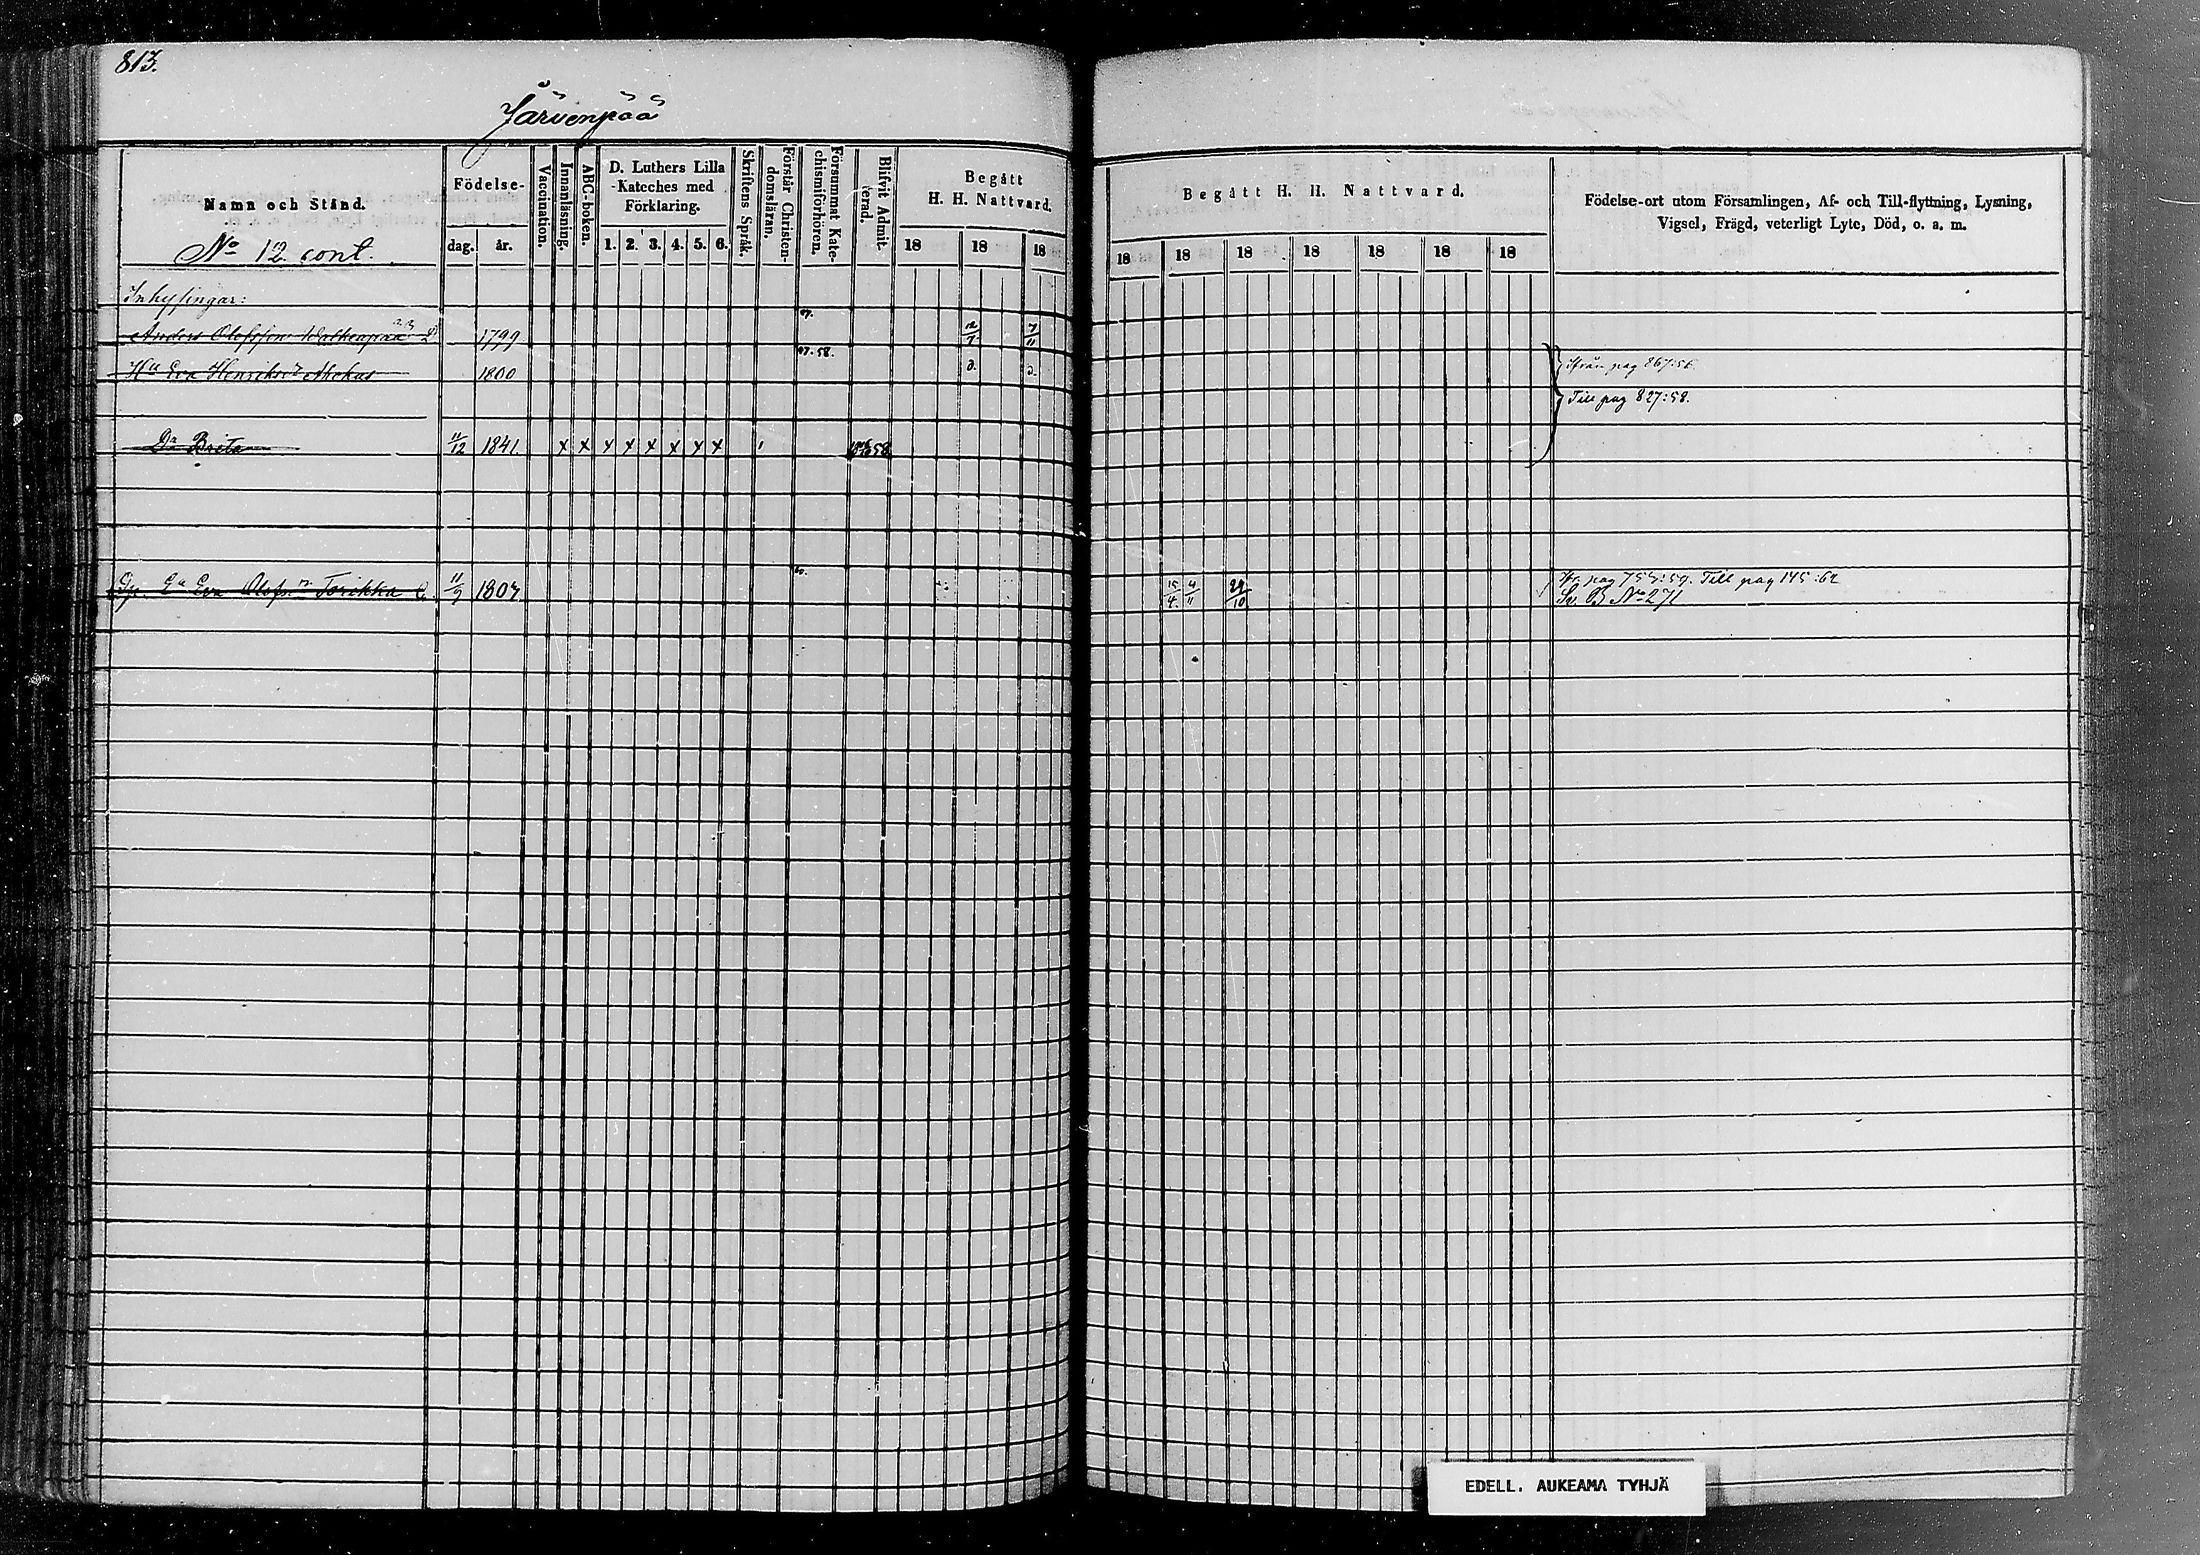 813.
Järvenpää
Namn och Stånd.
No 12 cont.
Födelse-
dag. år.
Vaccination.
Innanläsning.
ABC-boken.
D. Luthers Lilla
Kateches med
Förklaring.
1. 2. 3. 4. 5. 6.
Skriftens Språk.
Förstår Christen-
domsläran.
Försummat Kate-
chismiförhören.
Blifvit Admit-
terad.
Begått
H. H. Nattvard.
18 18 18
Begått H. H. Nattvard.
18 18 18 18 18 18 18
Födelse-ort utom Församlingen, Af- och Till-flyttning, Lysning,
Vigsel, Frägd, veterligt Lyte, Död, o. a. m.
Inhysingar:
Anders Olofsson 1799 12/7 7/11
Hu Eva Henriksdr 1800 57.58. d. d.
ifrån pag 867:56.
Till pag 827:58.
Dr Brita 11/12 1841. x x x x x x x x 58
Eva Olofsdr Torikka 11/9 1807. 15/4 4/11 29/10
Fr. pag Till pag 145:62
Sv. B No 271
EDELL. AUKEAMA TYHJÄ